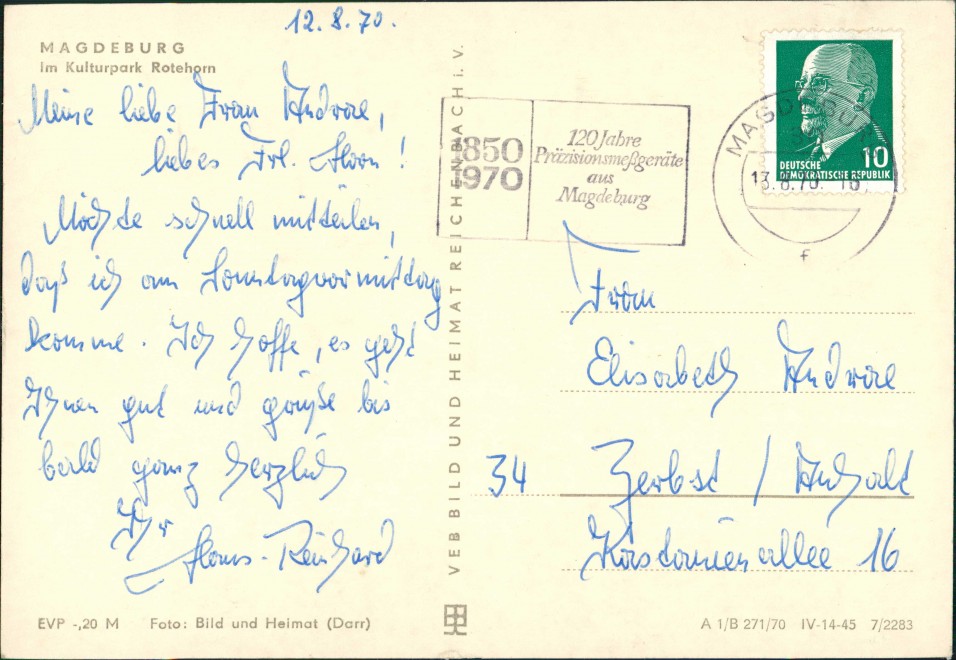 12.8.70.
MAGDEBURG
Im Kulturpark Rotehorn
Meine liebe Frau Andrae,
liebes Frl. !
Möchte schnell mitteilen,
daß ich am Sonntagvormittag
komme. Ich hoffe, es geht
Ihnen gut und grüße bis
bald ganz herzlich
Ihr
Hans-Reinhard
EVP -,20 M Foto: Bild und Heimat (Darr)
VEB BILD UND HEIMAT REICHENBACH i. V.
1850
1970
120 Jahre
Präzisionsmeßgeräte
aus
Magdeburg
MAGDEBURG
13.8.70.
f
DEUTSCHE
DEMOKRATISCHE REPUBLIK
10
Frau
Elisabeth Andrae
34 Zerbst / Anhalt
Kastanienallee 16
A 1/B 271/70 IV-14-45 7/2283